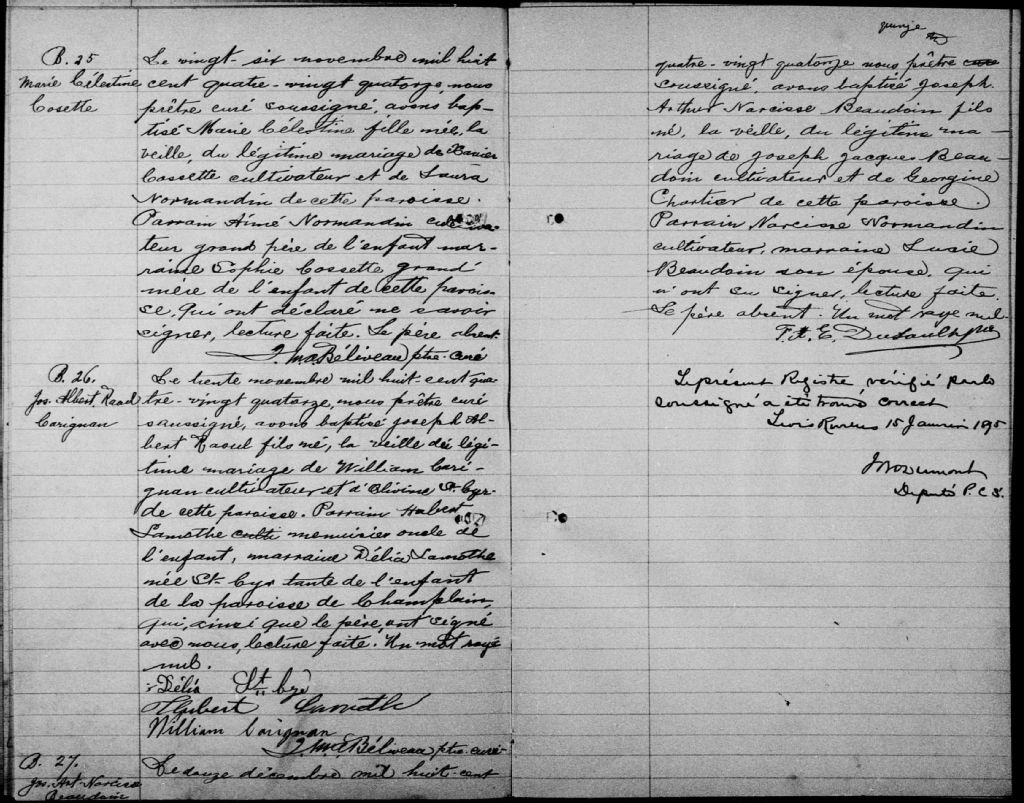 B. 25
Marie Célestine
Cossette
Le vingt-six novembre mil huit
cent quatre-vingt quatorze, nous
prêtre curé soussigné, avons bap-
tisé Marie Célestine fille née, la
veille, du légitime mariage de Xavier
Cossette cultivateur et de Laura
Normandin de cette paroisse.
Parrain Aimé Normandin cultiva-
teur grand père de l'enfant mar-
raine Sophie Cossette grand
mère de l'enfant de cette parois-
se, qui ont déclaré ne savoir
signer, lecture faite. Le père absent.
Béliveau ptre-curé
B. 26.
Jos. Albert Raoul
Carignan
Le trente novembre mil huit-cent qua-
tre-vingt quatorze, nous prêtre curé
soussigné, avons baptisé Joseph Al-
bert Raoul fils né, la veille du légi-
time mariage de William Cari-
gnan cultivateur et d'Olivine St. Cyr
de cette paroisse. Parrain Hubert
Lamothe culti menuisier oncle de
l'enfant, marraine Délia Lamothe
née St-Cyr tante de l'enfant
de la paroisse de Champlain,
qui, ainsi que le père, ont signé
avec nous, lecture faite. Un mot rayé
nul.
Délia St Cyr
Hubert Lamothe
William Carignan
Béliveau ptre-curé
B. 27.
Jos. Art. Narcisse
Beaudoin
Le douze décembre mil huit-cent
quatre-vingt quatorze nous prêtre curé
soussigné, avons baptisé Joseph
Arthur Narcisse Beaudoin fils
né, la veille, du légitime ma-
riage de Joseph Jacques Beau-
doin cultivateur et de Georgine
Chartier de cette paroisse.
Parrain Narcisse Normandin
cultivateur, marraine Lusie
Beaudoin son épouse, qui
n'ont su signer, lecture faite.
Le père absent. Un mot raye nul.
F. X. E. Dusault ptre
Le présent Registre, vérifié par le
soussigné a été trouvé correct
Trois Rivières 15 Janvier 1895
Dumont
Député P.C.S.